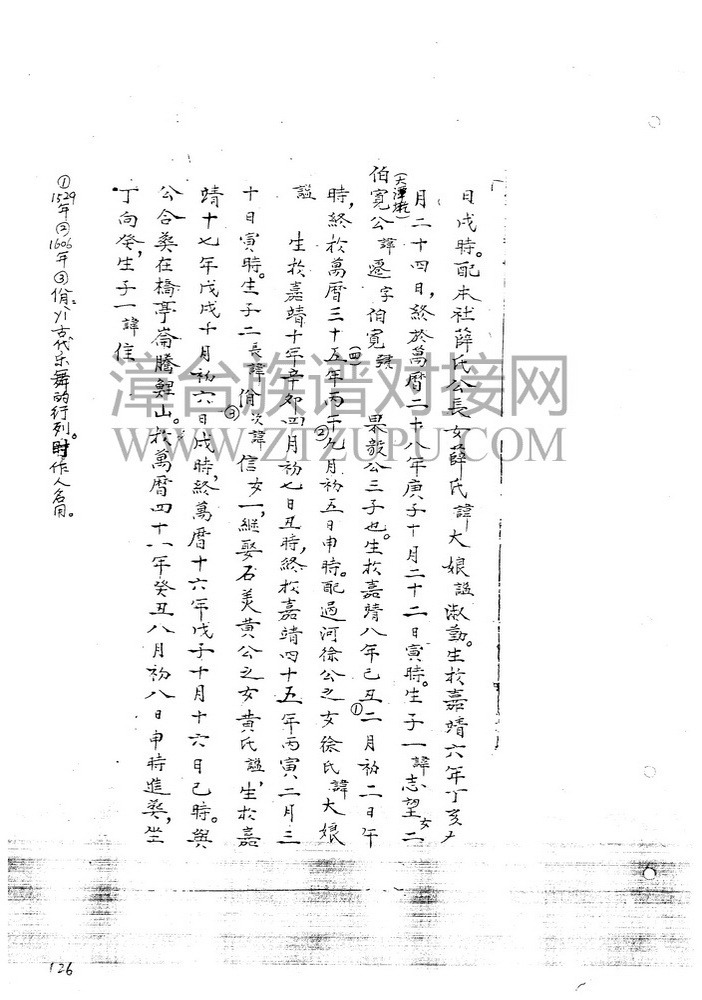 日戌時。配本社薛氏公長女薛氏諱大娘謚淑勤。生於嘉靖六年丁亥
月二十四日,終於萬曆二十八年庚子十月二十二日寅時。生子一諱志望女二
伯寬公諱遷字伯寬號(四) 果毅公三子也。生於嘉靖八年己丑①二月初二日午
時,終於萬曆三十五年丙午②九月初五日申時。配過河徐公之女徐氏諱大娘
謚 生於嘉靖十年辛卯四月初七日丑時,終於嘉靖四十五年丙寅二月三
十日寅時。生子二長諱佾③次諱信女一,継娶石美黃公之女黃氏謚,生於嘉
靖十七年戊戌十月初六日戌時,終萬曆十六年戊子十月十六日巳時。與
公合葬在橋亭崙騰鯉山。於萬曆四十一年癸丑八月初八日申時進葬,坐
丁向癸,生子一諱信
①1529年②1606年③佾:yì古代乐舞的行列。时作人名用。
126
漳台族谱对接网
WWW.ZTZUPU.COM